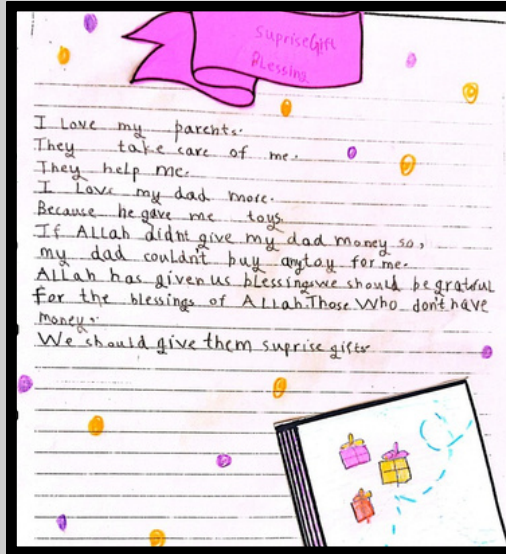 SupriseGift
Blessing
I Love my parents.
They take care of me.
They help me.
I Love my dad more.
Because he gave me toys.
If ALLah didnt give my dad money so,
my dad couldn't buy anytoy for me.
ALLah has given us blessingswe should be grateful
for the blessings of ALLah.Those Who don't have
money.
We should give them suprise gifts.